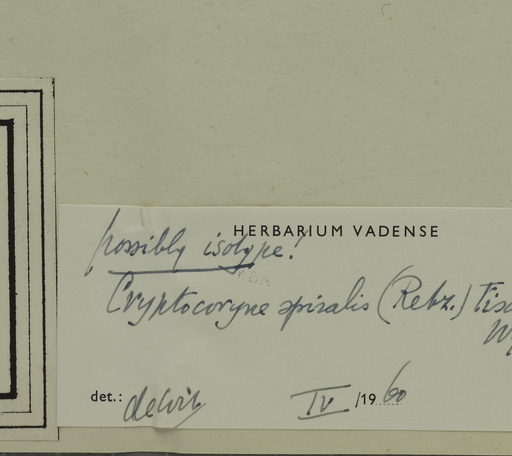 HERBARIUM VADENSE
possibly isotype!
Cryptocoryne spiralis (Retz.) Fisc
det.: deWit IV /1960